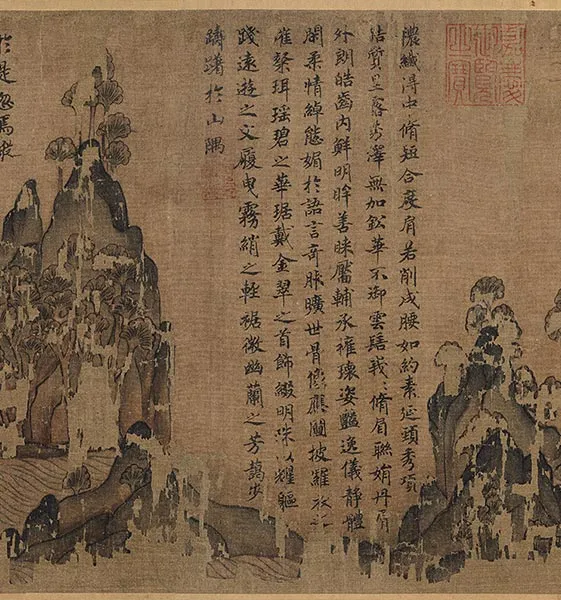 濃纖得中脩短合度肩若削成腰如約素延頸秀項
質呈露芳澤無加鈆華不御雲髻峩〻脩眉聯娟丹脣
外朗皓齒內鮮明眸善睞靨輔承權瓌姿豔逸儀靜體
閑柔情綽態媚於語言奇服曠世骨像應圖披羅衣之
璀粲珥瑤碧之華琚戴金翠之首飾綴明珠以耀軀
踐遠遊之文履曳霧綃之輕裾微幽蘭之芳藹步
躊躇於山隅
於是忽焉縱